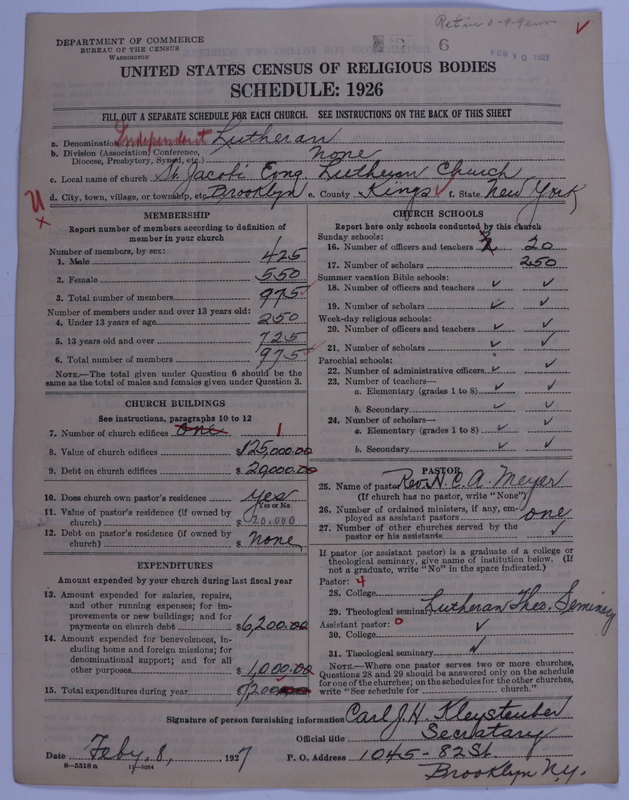 Ret in 0-9-9
6
FEB 10 1927
DEPARTMENT OF COMMERCE
BUREAU OF THE CENSUS
WASHINGTON
UNITED STATES CENSUS OF RELIGIOUS BODIES
SCHEDULE: 1926
FILL OUT A SEPARATE SCHEDULE FOR EACH CHURCH. SEE INSTRUCTIONS ON THE BACK OF THIS SHEET
a. Denomination Independent Lutheran
b. Division (Association, Conference, Diocese, Presbytery, Synod, etc.) None
c. Local name of church St. Jacobi Evng. Lutheran Church
d. City, town, village, or township, etc. Brooklyn e. County Kings f. State New York
MEMBERSHIP
Report number of members according to definition of
member in your church
Number of members, by sex:
1. Male 425
2. Female 550
3. Total number of members 975
Number of members under and over 13 years old:
4. Under 13 years of age 250
5. 13 years old and over 725
6. Total number of members 975
NOTE.—The total given under Question 6 should be
same as the total of males and females given under Question 3.
CHURCH BUILDINGS
See instructions, paragraphs 10 to 12
7. Number of church edifices one 1
8. Value of church edifices $125,000.00
9. Debt on church edifices $20000.00
10. Does church own pastor's residence yes
Yes or No
11. Value of pastor's residence (if owned by
church) $20,000
12. Debt on pastor's residence (if owned by
church) $ none
EXPENDITURES
Amount expended by your church during last fiscal year
13. Amount expended for salaries, repairs,
and other running expenses; for im-
provements or new buildings; and for
payments on church debt $6,200.00
14. Amount expended for benevolences, in-
cluding home and foreign missions; for
denominational support; and for all
other purposes $1,000.00
15. Total expenditures during year $7200.00
CHURCH SCHOOLS
Report here only schools conducted by this church
Sunday schools:
16. Number of officers and teachers 2 20
17. Number of scholars 250
Summer vacation Bible schools:
18. Number of officers and teachers
19. Number of scholars
Week-day religious schools:
20. Number of officers and teachers
21. Number of scholars
Parochial schools:
22. Number of administrative officers
23. Number of teachers—
a. Elementary (grades 1 to 8)
b. Secondary
24. Number of scholars—
a. Elementary (grades 1 to 8)
b. Secondary
PASTOR
25. Name of pastor Rev. H. C. A. Meyer
(If church has no pastor, write "None")
26. Number of ordained ministers, if any, em-
ployed as assistant pastors one
27. Number of other churches served by the
pastor or his assistants
If pastor (or assistant pastor) is a graduate of a college or
theological seminary, give name of institution below. (If
not a graduate, write "No" in the space indicated.)
Pastor: 4
28. College
29. Theological seminary Lutheran Theo. Seminey
Assistant pastor: 0
30. College
31. Theological seminary
NOTE.—Where one pastor serves two or more churches,
Questions 28 and 29 should be answered only on the schedule
for one of the churches; on the schedules for the other churches,
write "See schedule for church."
Signature of person furnishing information Carl J. H. Kleysteuber
Official title Secratary
Date Feby. 8, 1927 P. O. Address 1045 - 82 St.
8-5318a Brooklyn N.Y.